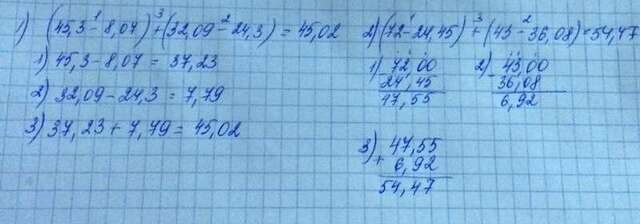 1) (45,3 - 8,07) + (32,09 - 24,3) = 45,02
1) 45,3 - 8,07 = 37,23
2) 32,09 - 24,3 = 7,79
3) 37,23 + 7,79 = 45,02
2) (72 - 24,45) + (43 - 36,08) = 54,47
1) 72,00
24,45
47,55
2) 43,00
36,08
6,92
3) 47,55
+ 6,92
54,47